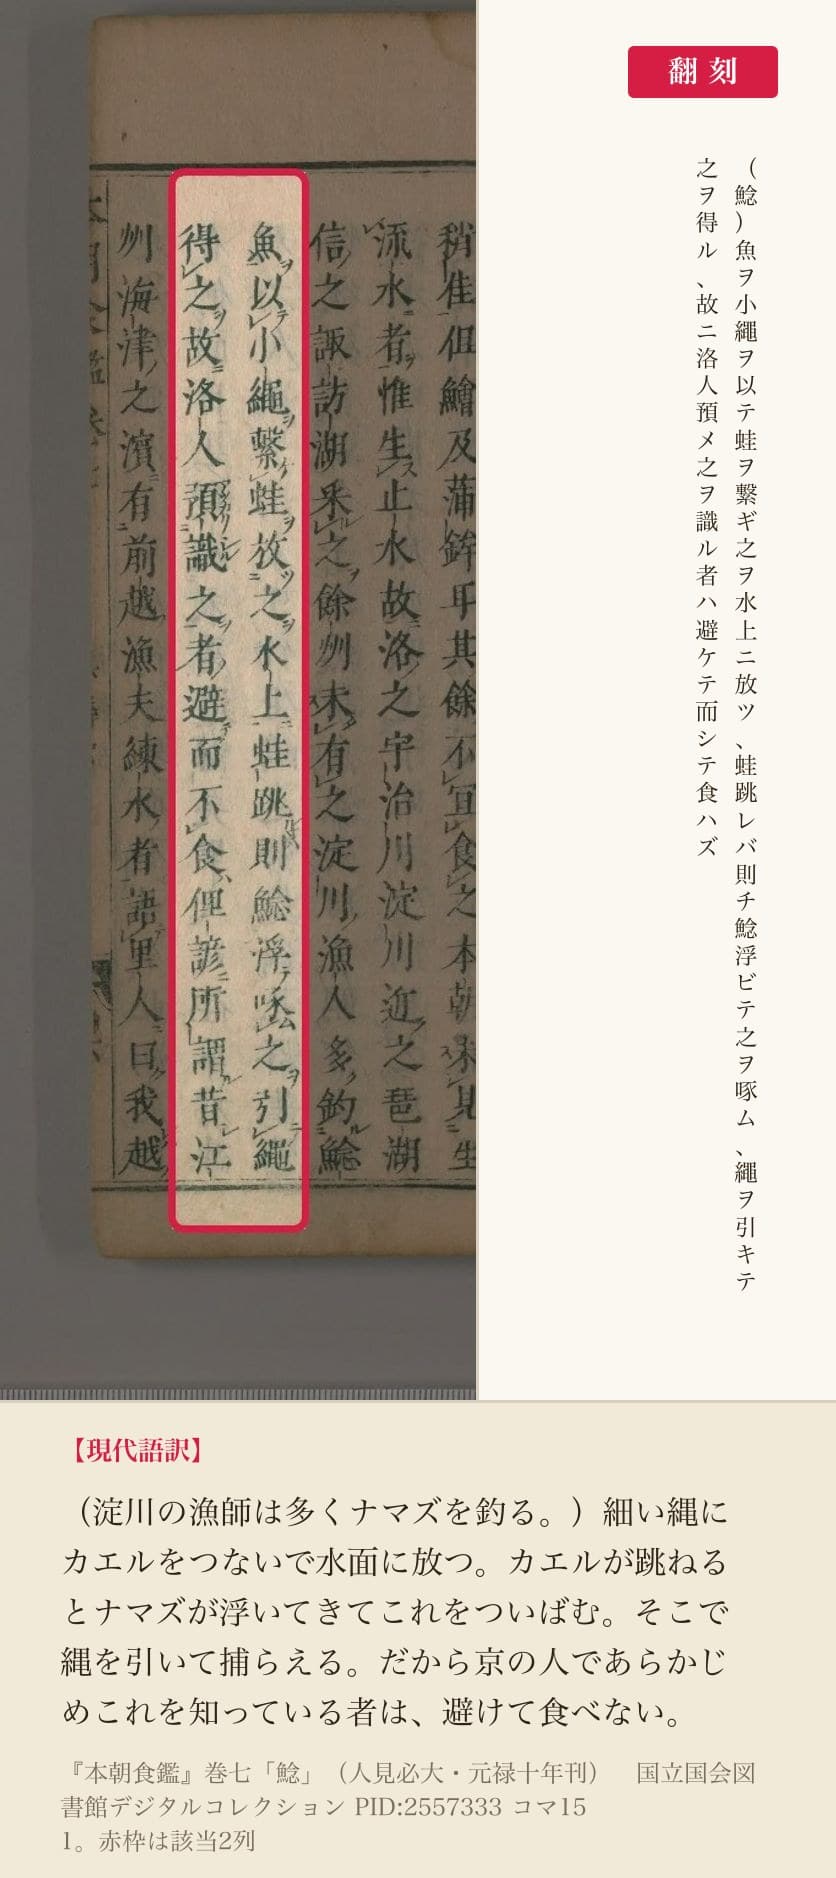 稍佳但鱠及蒲鉾耳其餘不宜食之本朝未見生
流水者惟生止水故洛之宇治川淀川近之琵湖
信之諏訪湖釆之餘州未有之淀川漁人多釣鯰
魚以小繩繫蛙放之水上蛙跳則鯰浮啄之引繩
得之故洛人預識之者避而不食俚諺所謂昔江
州海津之濱有前越漁夫練水者語里人曰我越
翻刻
（鯰）魚ヲ小繩ヲ以テ蛙ヲ繋ギ之ヲ水上ニ放ツ、蛙跳レバ則チ鯰浮ビテ之ヲ啄ム、繩ヲ引キテ
之ヲ得ル、故ニ洛人預メ之ヲ識ル者ハ避ケテ而シテ食ハズ
【現代語訳】
（淀川の漁師は多くナマズを釣る。）細い縄に
カエルをつないで水面に放つ。カエルが跳ねる
とナマズが浮いてきてこれをついばむ。そこで
縄を引いて捕らえる。だから京の人であらかじ
めこれを知っている者は、避けて食べない。
『本朝食鑑』巻七「鯰」（人見必大・元禄十年刊）　国立国会図
書館デジタルコレクション PID:2557333 コマ15
1。赤枠は該当2列